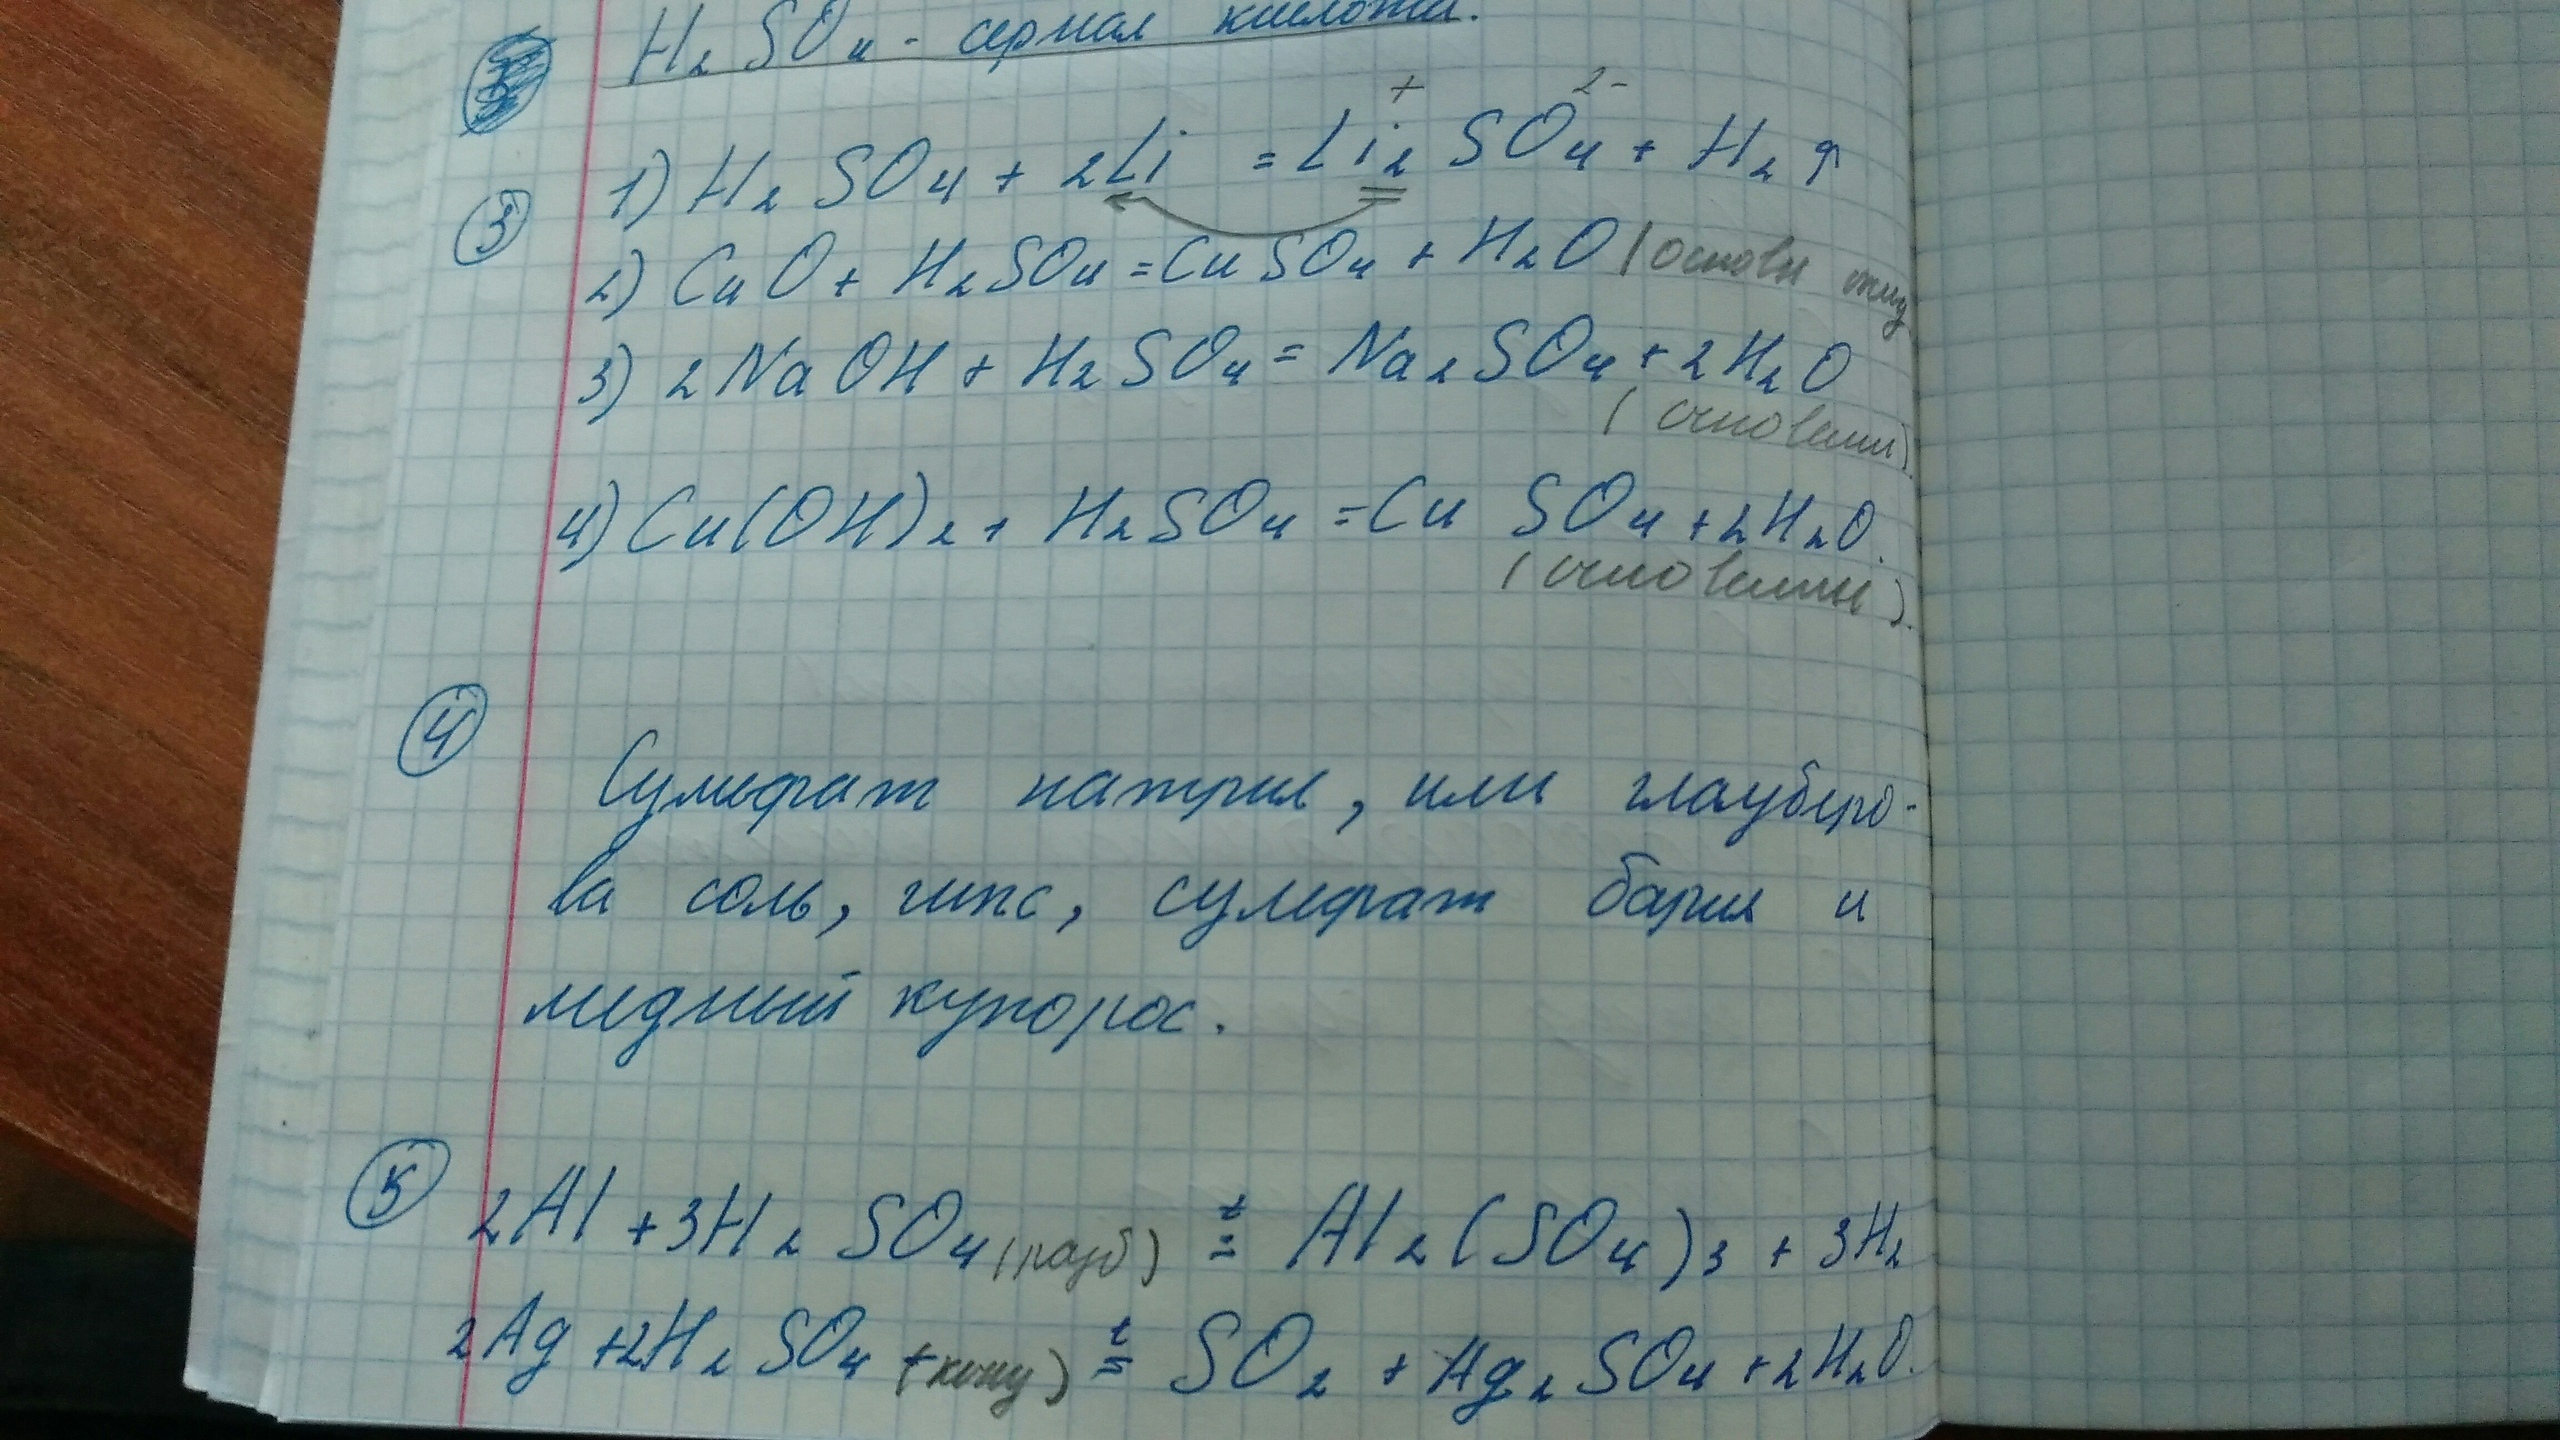 H₂SO₄ - серная кислота.
+ 2-
③ 1) H₂SO₄ + 2Li = Li₂SO₄ + H₂↑
2) CuO + H₂SO₄ = CuSO₄ + H₂O (основн
3) 2NaOH + H₂SO₄ = Na₂SO₄ + 2H₂O
(основании)
4) Cu(OH)₂ + H₂SO₄ = CuSO₄ + 2H₂O.
(основании).
④ Сульфат натрия, или глауберо-
ва соль, гипс, сульфат бария и
медный купорос.
⑤ 2Al + 3H₂SO₄ (разб) t= Al₂(SO₄)₃ + 3H₂
2Ag + 2H₂SO₄ (конц) t= SO₂ + Ag₂SO₄ + 2H₂O.